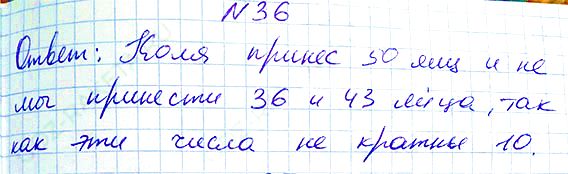 N 36
Ответ: Коля принес 50 яиц и не
мог принести 36 и 43 яйца, так
как эти числа не кратны 10.